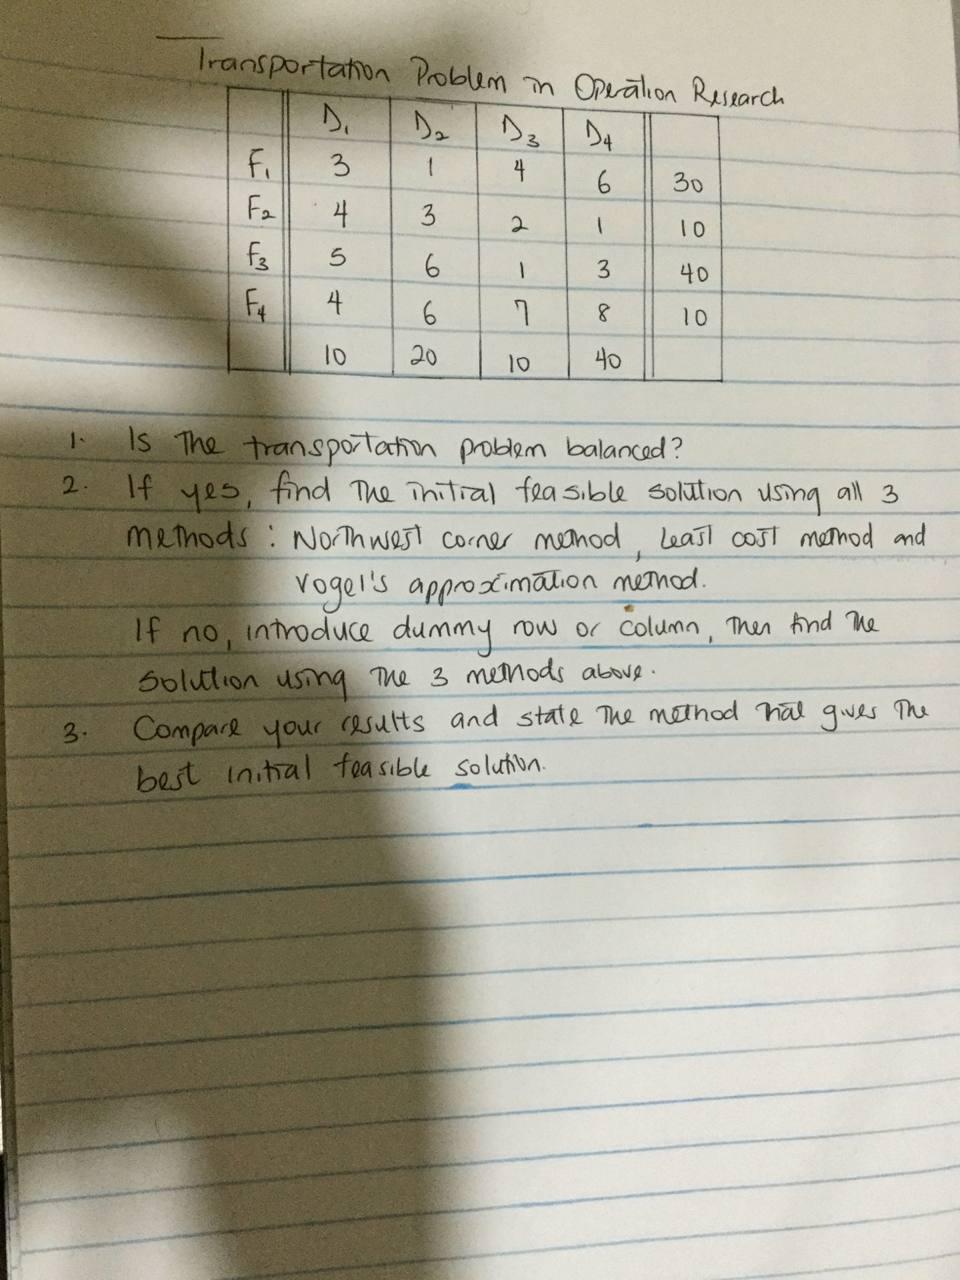 Transportation Problem in Operation Research
D1 D2 D3 D4
F1 3 1 4 6 30
F2 4 3 2 1 10
F3 5 6 1 3 40
F4 4 6 7 8 10
10 20 10 40
1. Is The transportation problem balanced?
2. If yes, find The initial feasible solution using all 3
methods : Northwest corner method, least cost method and
Vogel's approximation method.
If no, introduce dummy row or column, Then find The
Solution using The 3 methods above.
3. Compare your results and state The method that gives The
best initial feasible solution.